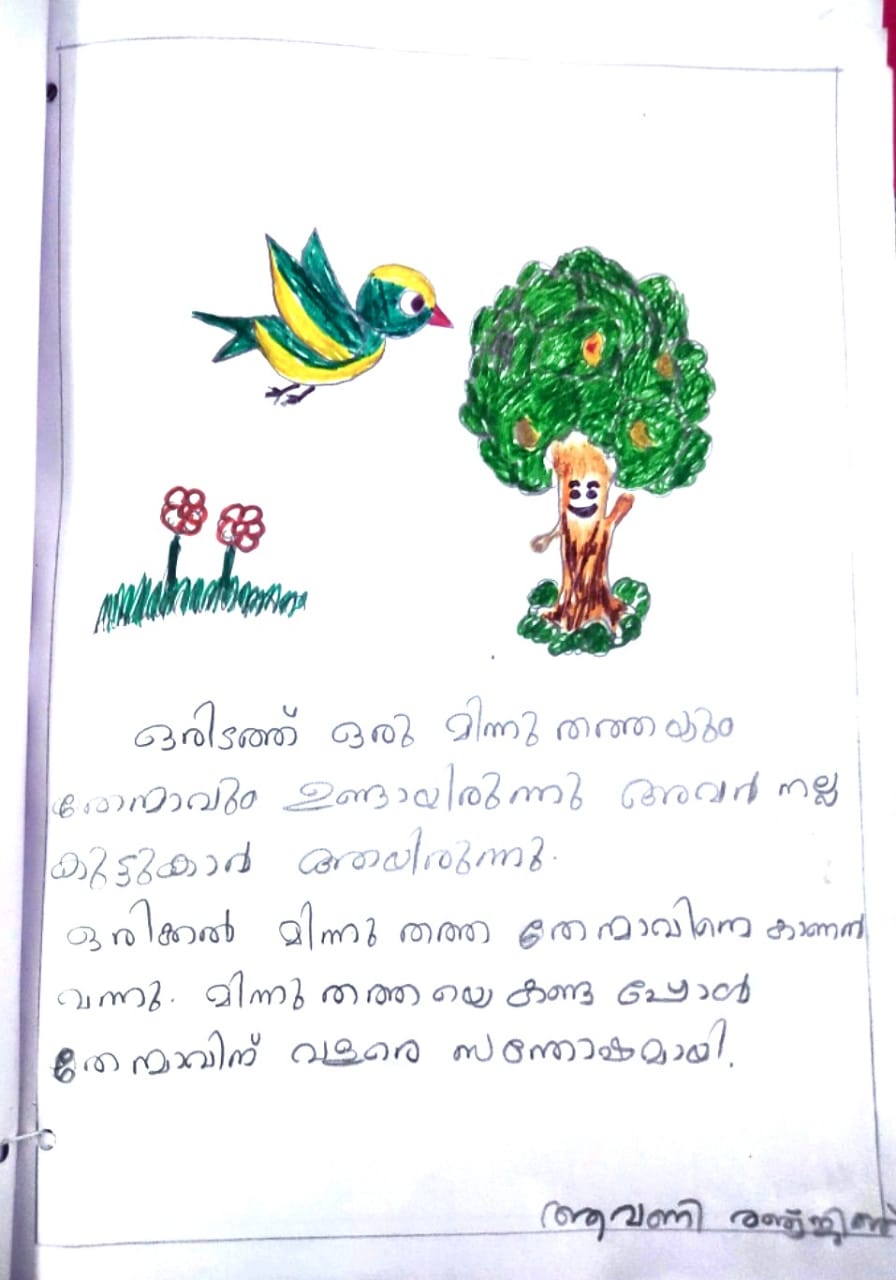 ഒരിടത്ത് ഒരു മിന്നു തത്തയും
തേന്മാവും ഉണ്ടായിരുന്നു അവർ നല്ല
കൂട്ടുകാർ ആയിരുന്നു.
ഒരിക്കൽ മിന്നു തത്ത തേന്മാവിനെ കാണൻ
വന്നു. മിന്നു തത്ത യെ കണ്ട പ്പോൾ
തേന്മാവിന് വളരെ സന്തോഷമായി.
ആവണി